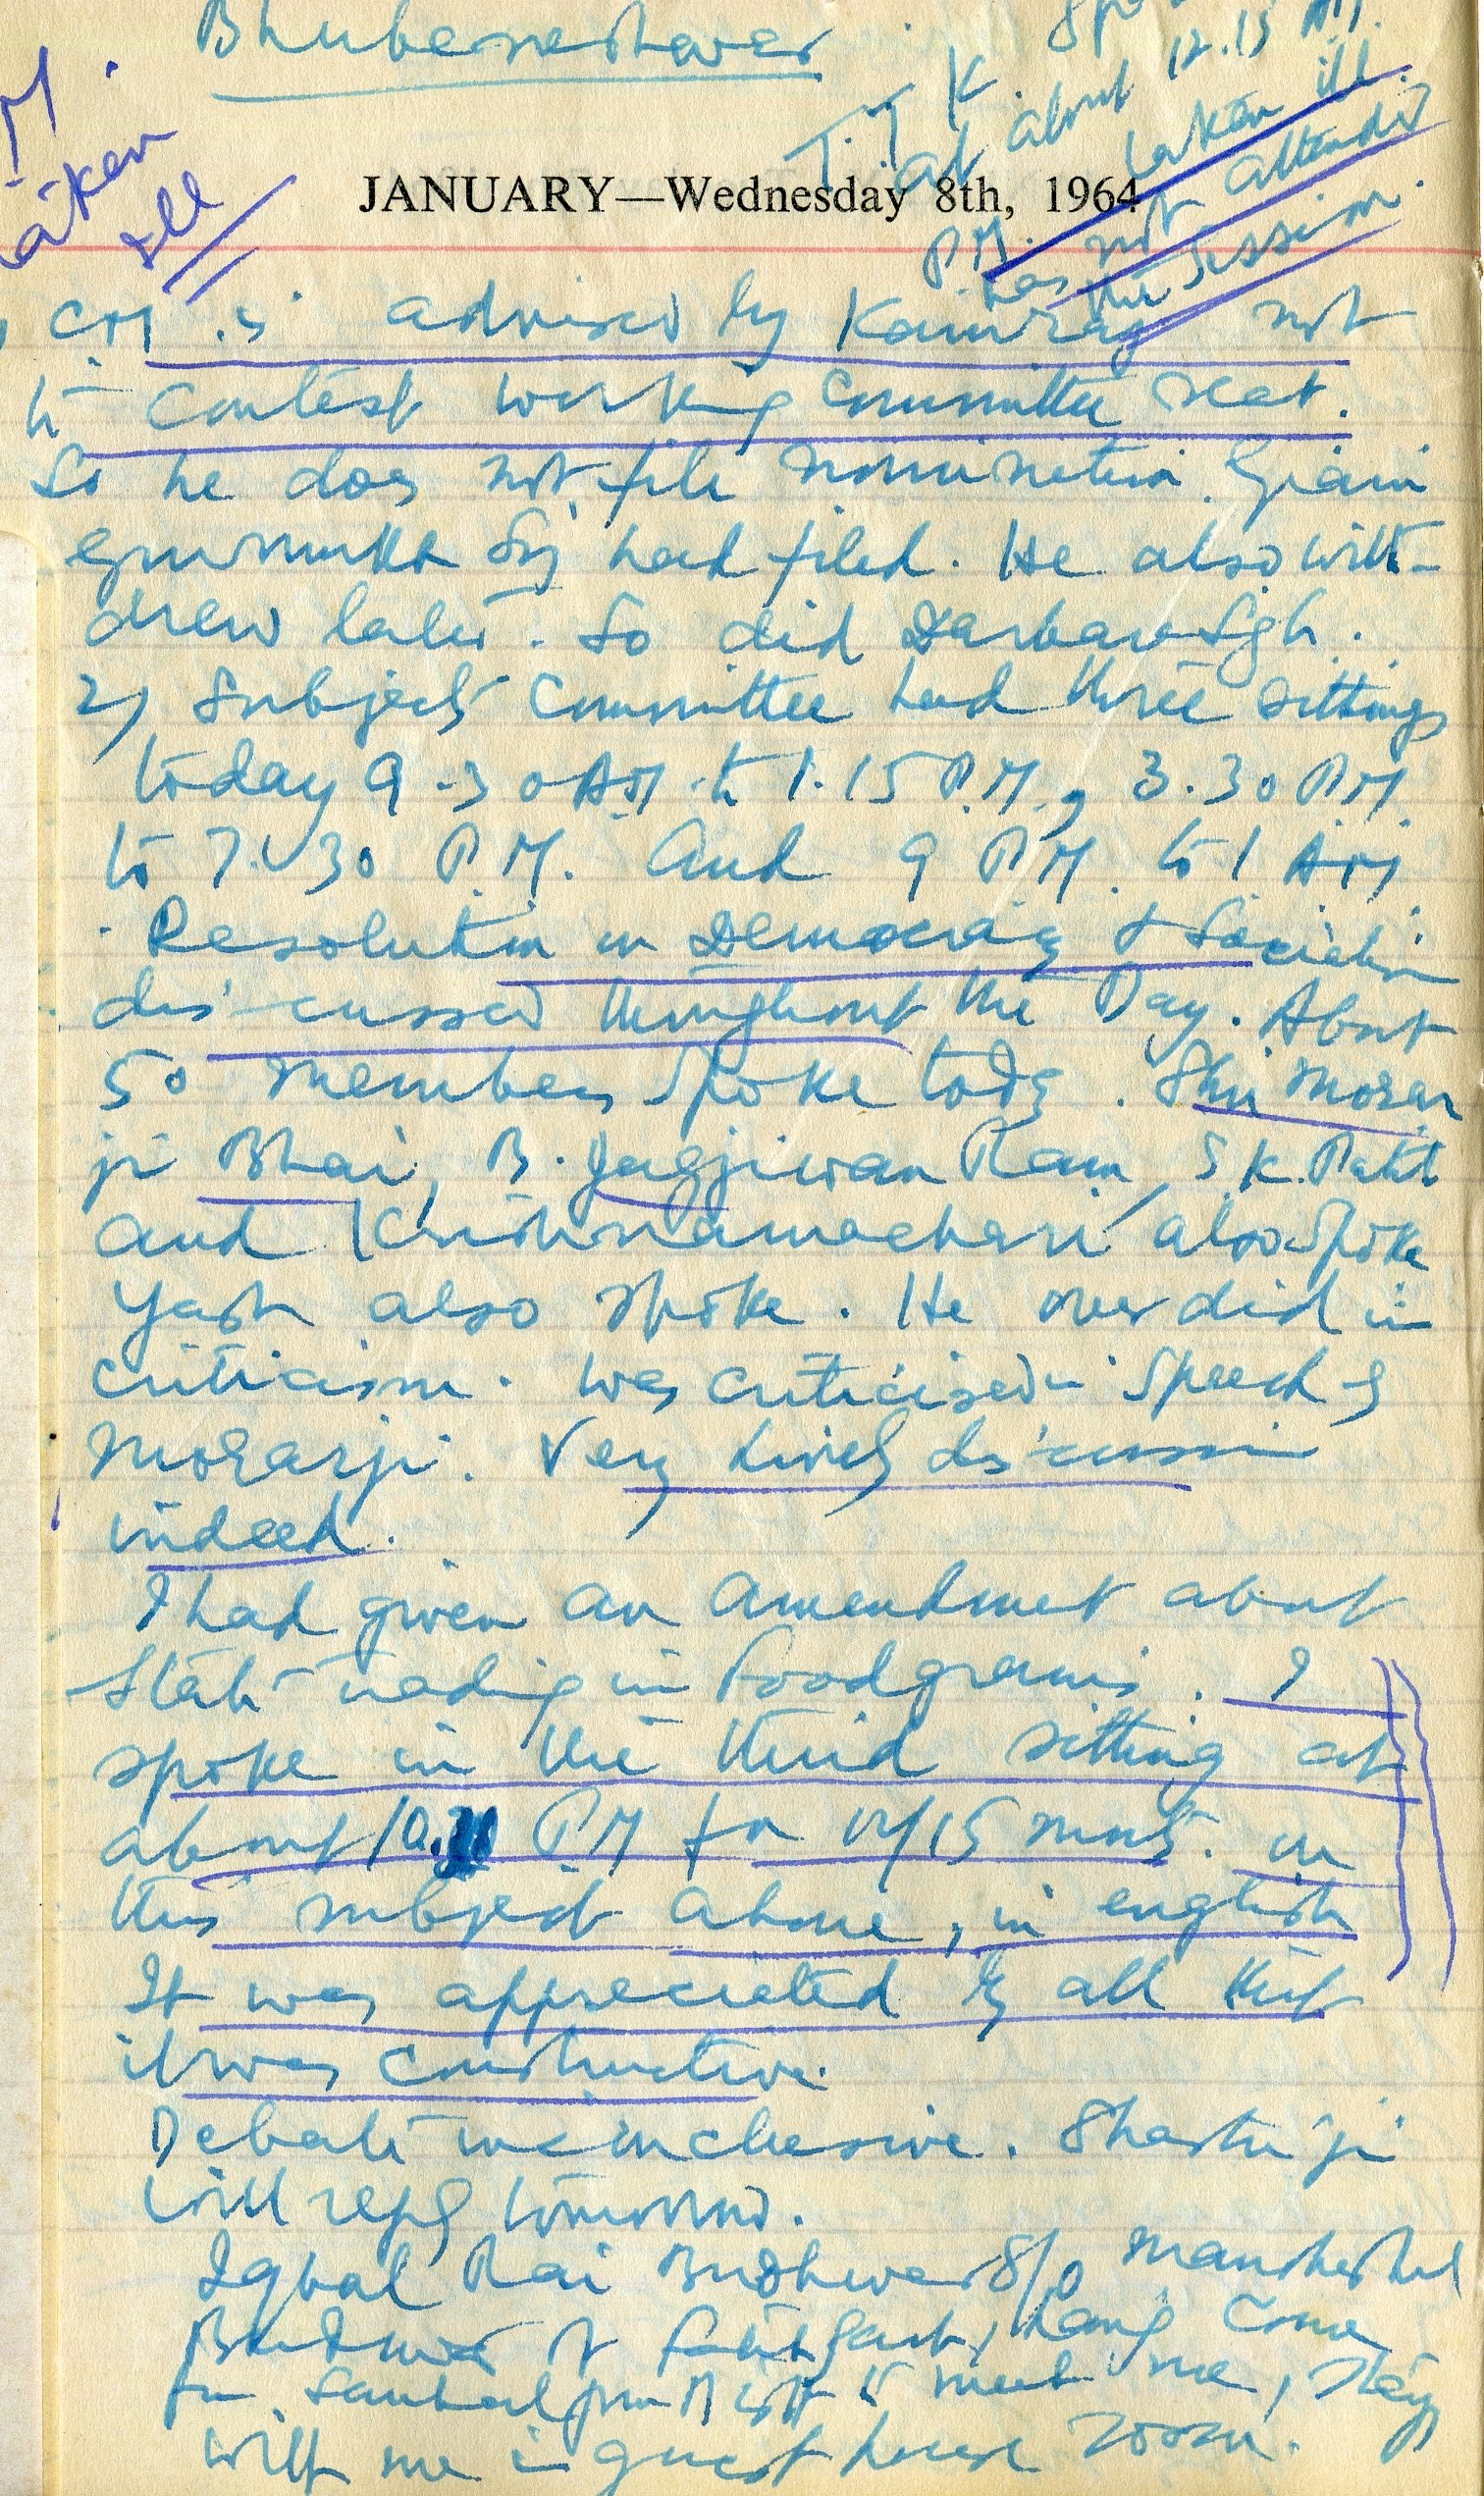 Bhubeneshwer
T.T.K. Sp
at about 12.15 P.M.
P.M. taken ill.
has not attended
the session.
M
taken
ill
JANUARY—Wednesday 8th, 1964
CM is advised by Kamraj not
to contest working committee seat.
So he does not file nomination. Giani
Gurmukh Sg had filed. He also with-
drew later. So did Darbara Sgh.
2) Subjects Committee had three sittings
today 9.30 AM to 1.15 P.M., 3.30 PM
to 7.30 P.M. and 9 PM to 1 AM.
Resolution on Democracy & Socialism
discussed throughout the Day. About
50 members spoke today. Shri Morar
ji Bhai, B. Jagjiwan Ram, S K. Patil
and Krishnamachari also spoke
Yash also spoke. He over did in
criticism. was criticised in speech of
Morarji. Very lively discussion
indeed.
I had given an amendment about
State trading in Foodgrains. I
spoke in the third sitting at
about 10. PM for 15 mnts. on
this subject alone, in english
It was appreciated by all that
it was constructive.
Debate inconclusive. Shastri ji
will reply tomorrow.
Iqbal Rai Budhwar S/o
Budhwar of having come
from Sambalpur Distt to meet me, stays
with me in guest house room.